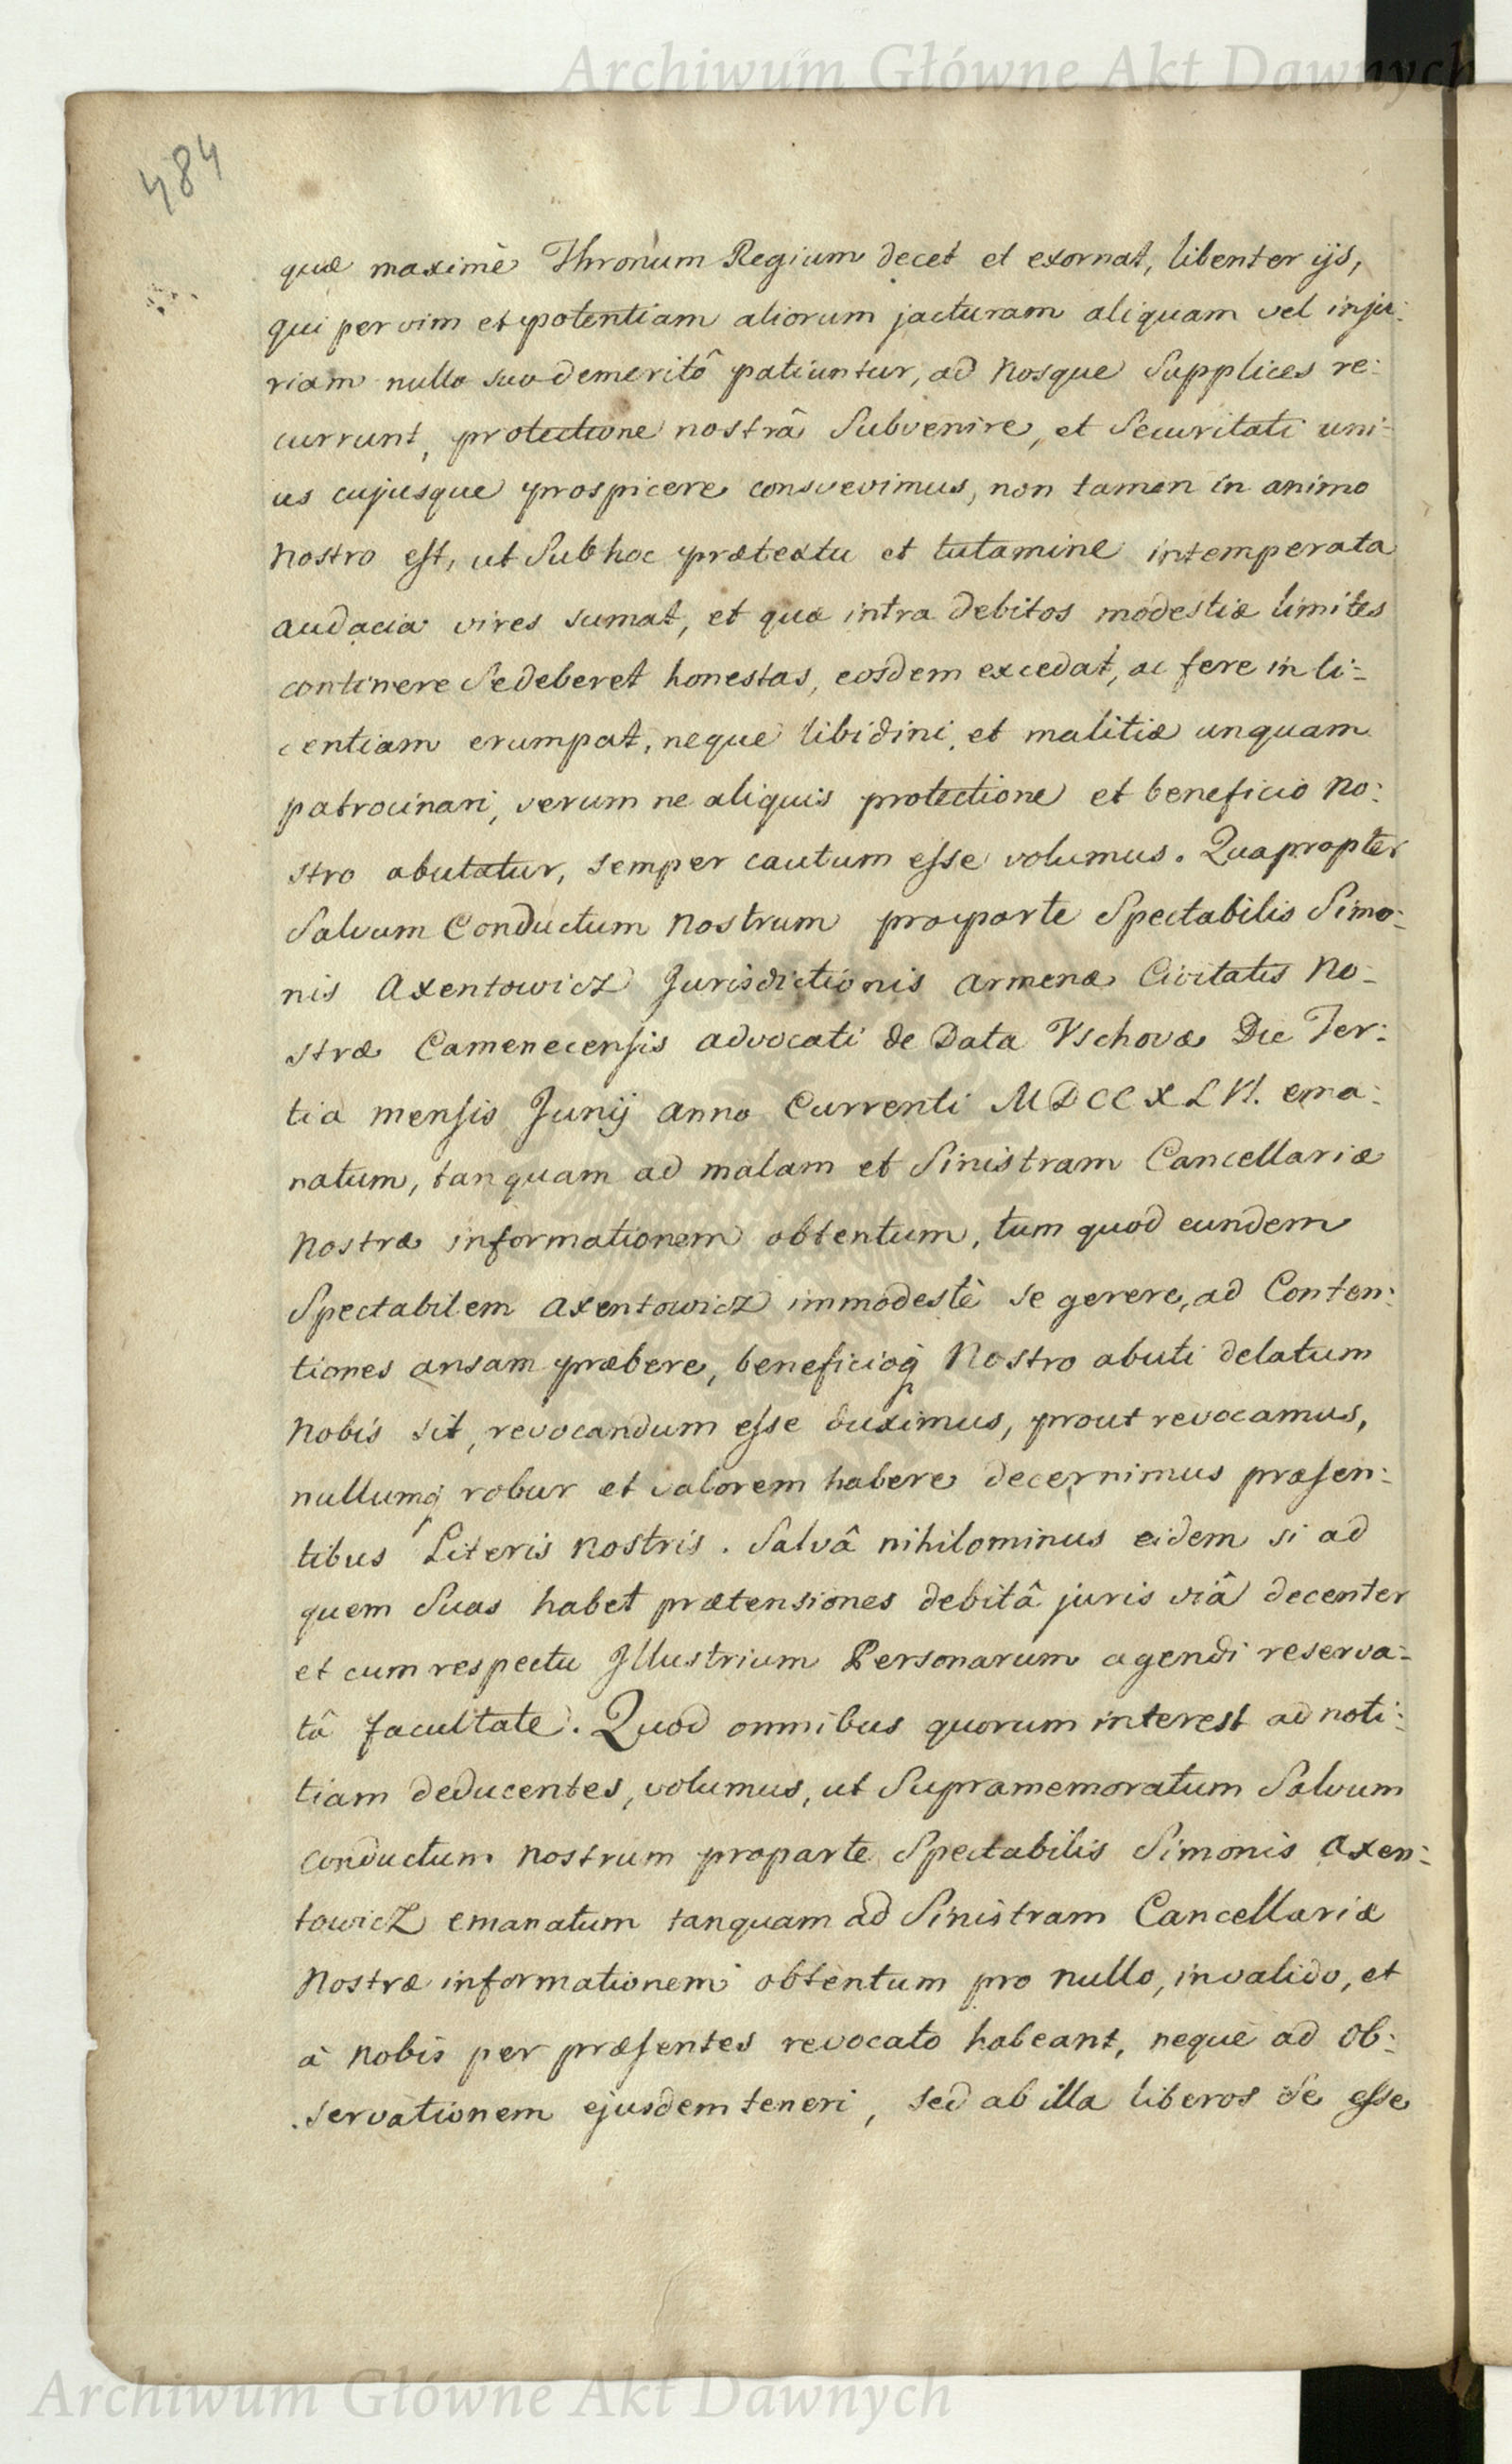 Archiwum Główne Akt Dawnych
484
quæ maximè Thronum Regium decet et exornat, libenter ijs,
qui per vim et potentiam aliorum jacturam aliquam vel inju:
riam nullo suo demeritô patiuntur, ad Nosque Supplices re:
currunt, protectione nostrâ Subvenire, et Securitati uni:
us cujusque prospicere consvevimus, non tamen in animo
Nostro est, ut Sub hoc prætextu et tutamine intemperata
audacia vires sumat, et quæ intra debitos modestiæ limites
continere Se deberet honestas, eosdem excedat, ac fere in li:
centiam erumpat, neque libidini, et malitiæ unquam
patrocinari, verum ne aliquis protectione et beneficio No:
stro abutatur, semper cautum esse volumus. Quapropter
Salvum Conductum Nostrum pro parte Spectabilis Simo:
nis Axentowicz Jurisdictionis Armenæ Civitatis No:
stræ Camenecensis Advocati de Data Vschovæ Die Ter:
tia mensis Junij Anno Currenti MDCCXLVI. ema:
natum, tanquam ad malam et Sinistram Cancellariæ
Nostræ informationem obtentum, tum quod eundem
Spectabilem Axentowicz immodestè se gerere, ad Conten:
tiones ansam præbere, beneficioq Nostro abuti delatum
Nobis sit, revocandum esse duximus, prout revocamus,
nullumq robur et valorem habere decernimus præsen:
tibus Literis Nostris. Salvâ nihilominus eidem si ad
quem Suas habet prætensiones debitâ juris viâ decenter
et cum respectu Jllustrium Personarum agendi reserva:
tâ facultate. Quod omnibus quorum interest ad noti:
tiam deducentes, volumus, ut Supramemoratum Salvum
conductum Nostrum pro parte Spectabilis Simonis Axen:
towicz emanatum tanquam ad Sinistram Cancellariæ
Nostræ informationem obtentum pro nullo, invalido, et
à Nobis per præsentes revocato habeant, neque ad Ob:
servationem ejusdem teneri, sed ab illa liberos Se esse
Archiwum Główne Akt Dawnych